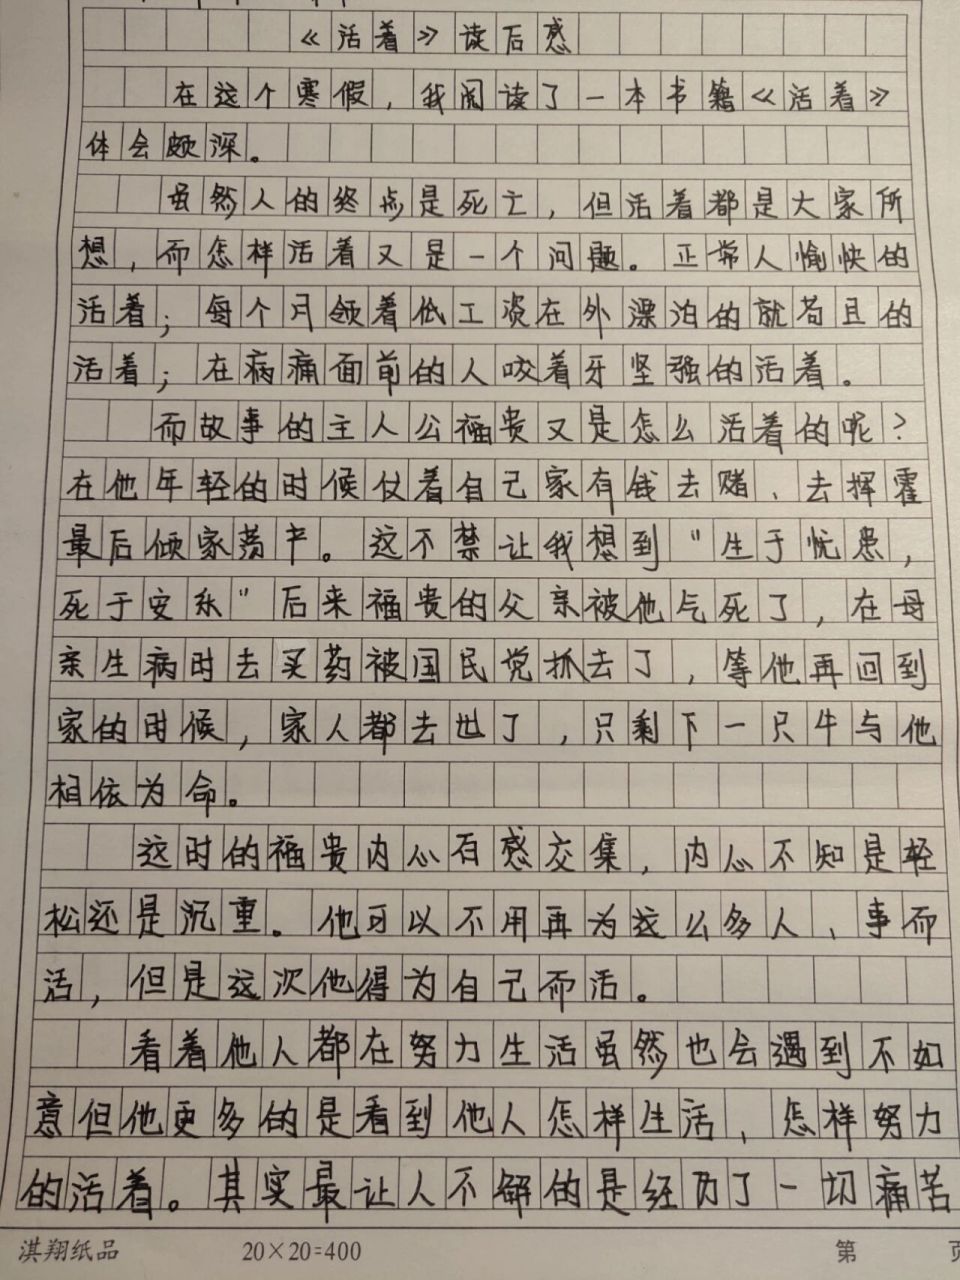 《活着》读后感
在这个寒假，我阅读了一本书籍《活着》
体会颇深。
虽然人的终点是死亡，但活着都是大家所
想，而怎样活着又是一个问题。正常人愉快的
活着；每个月领着低工资在外漂泊的就苟且的
活着；在病痛面前的人咬着牙坚强的活着。
而故事的主人公福贵又是怎么活着的呢？
在他年轻的时候仗着自己家有钱去赌、去挥霍
最后倾家荡产。这不禁让我想到“生于忧患，
死于安乐”后来福贵的父亲被他气死了，在母
亲生病时去买药被国民党抓去了，等他再回到
家的时候，家人都去世了，只剩下一只牛与他
相依为命。
这时的福贵内心百感交集，内心不知是轻
松还是沉重。他可以不用再为这么多人、事而
活，但是这次他得为自己而活。
看着他人都在努力生活虽然也会遇到不如
意但他更多的是看到他人怎样生活、怎样努力
的活着。其实最让人不解的是经历了一切痛苦
淇翔纸品 20×20=400 第 页